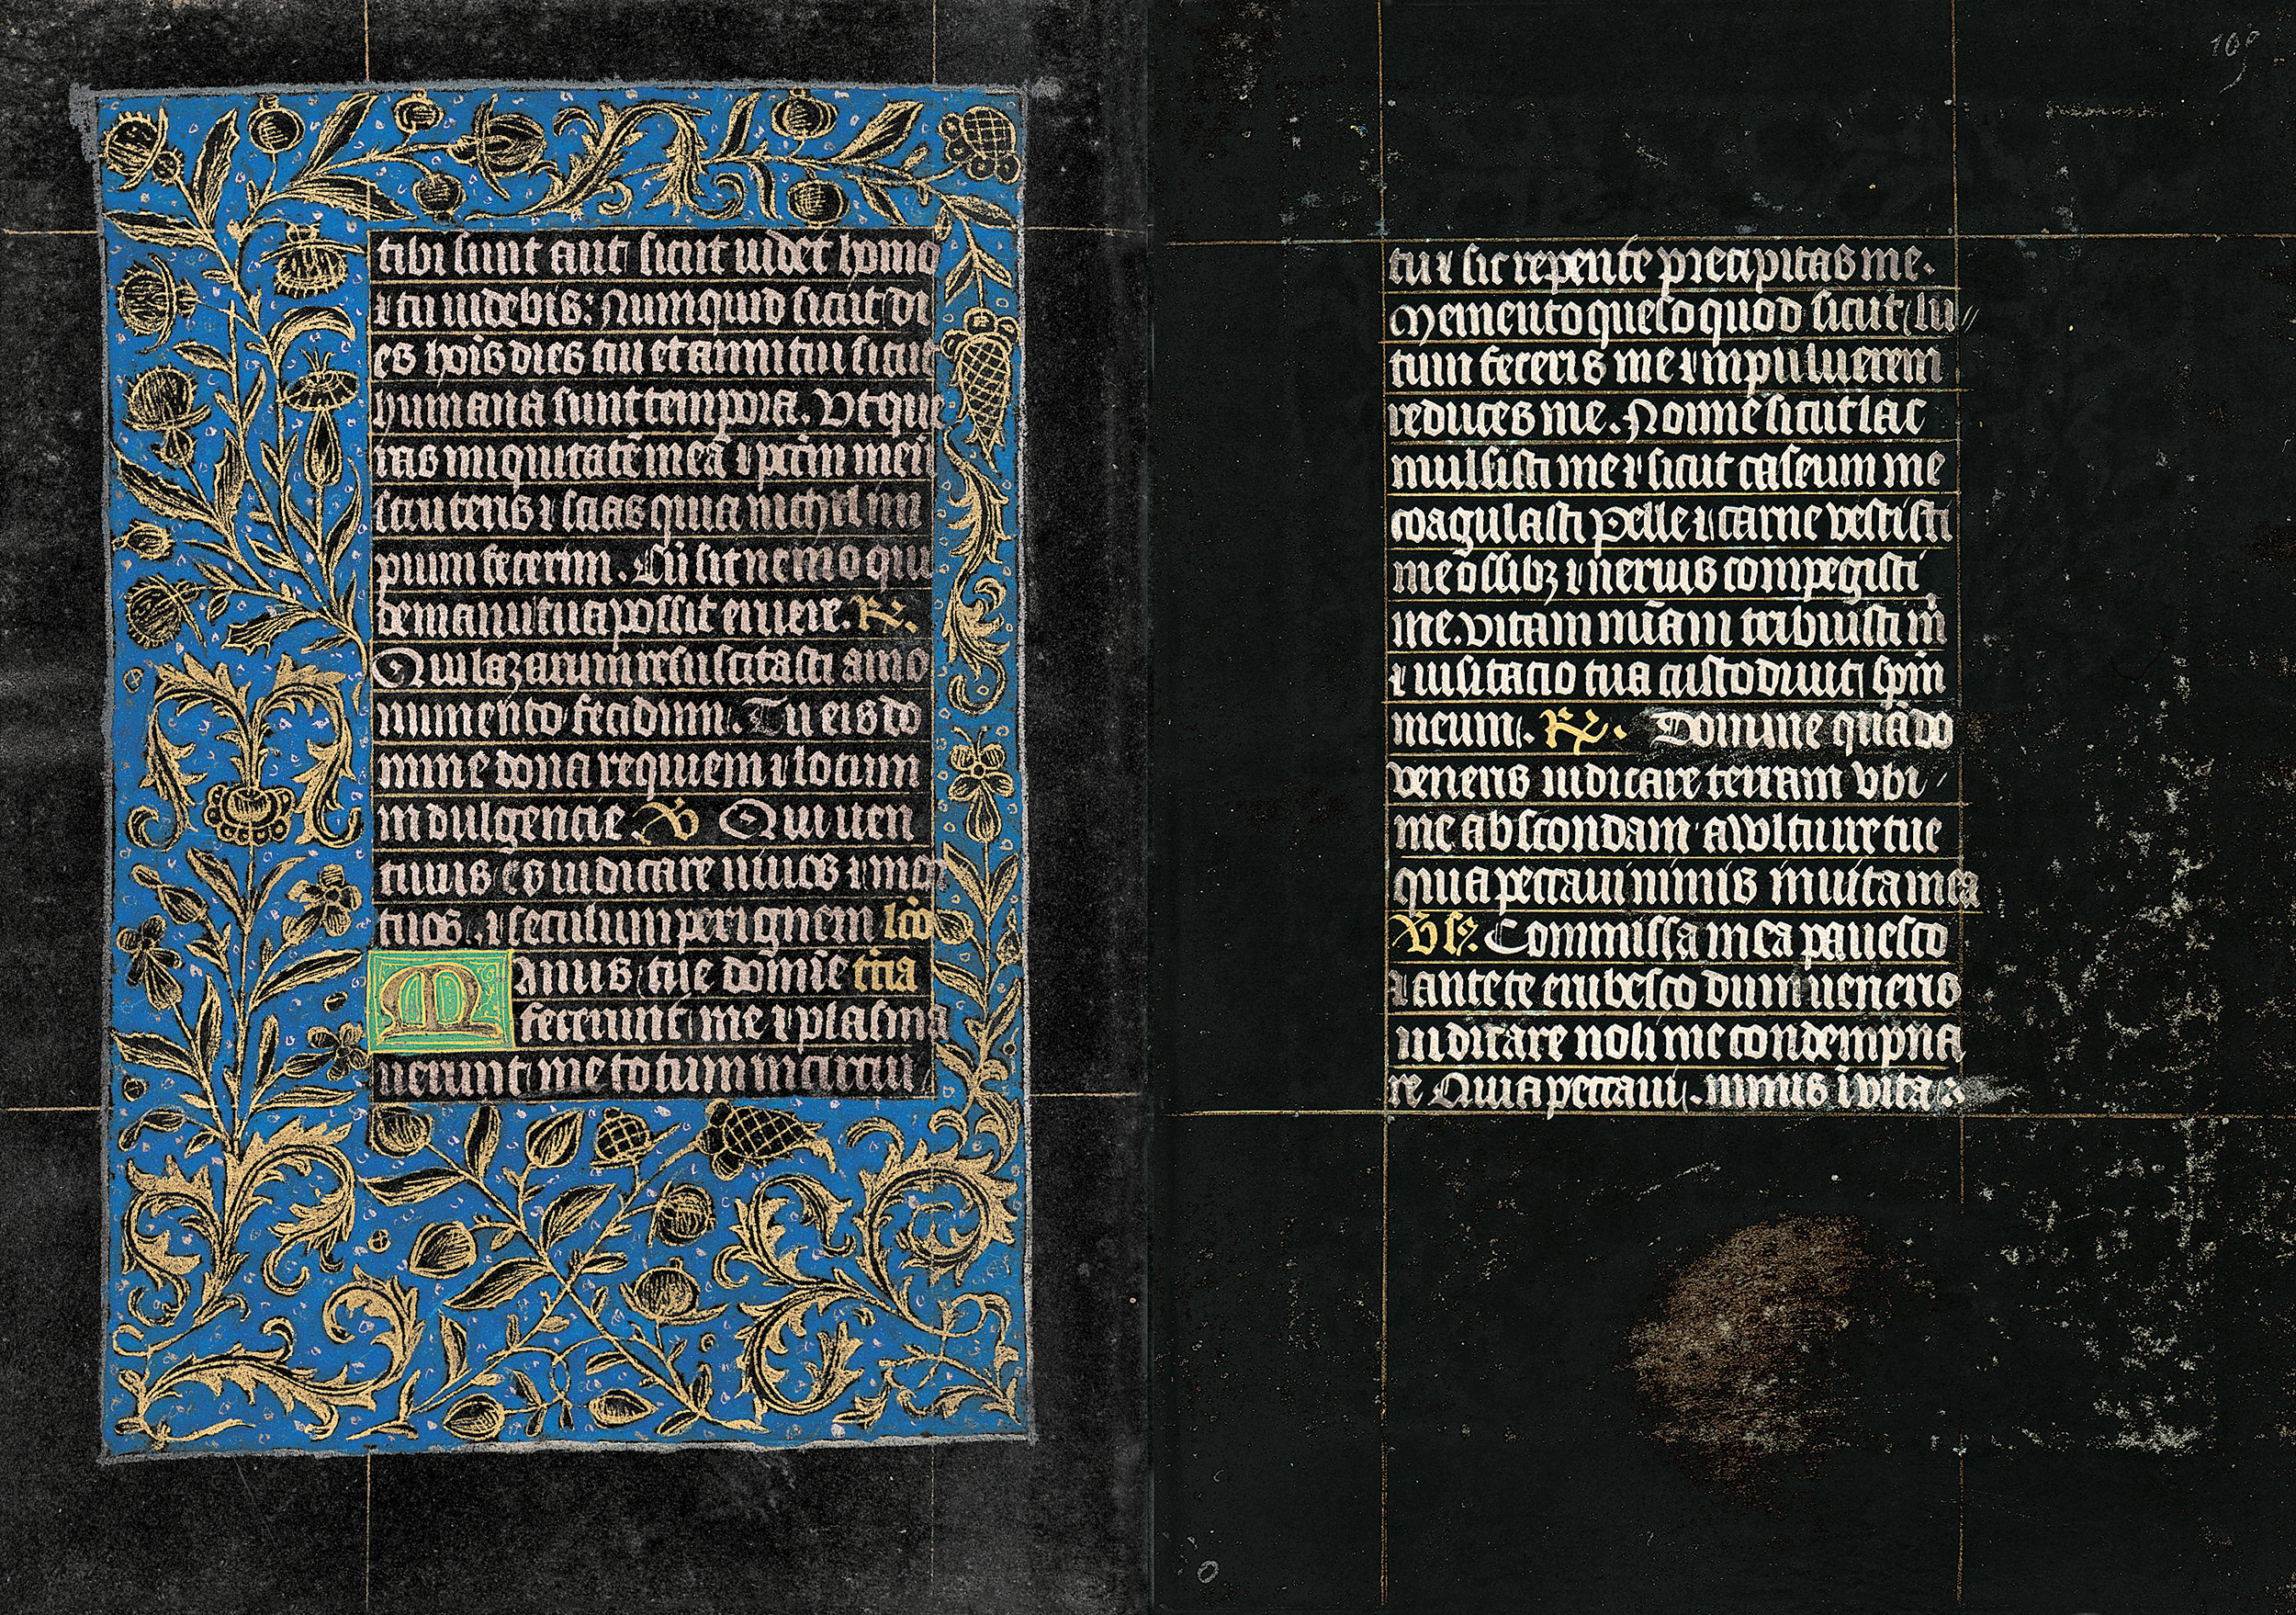 tibi sunt aut sicut uidet homo
⁊ tu uidebis: Numquid sicut di
es hoīs dies tui et anni tui sicut
humana sunt tempora. Vt que
ras iniquitatē meā ⁊ pctm̄ meū
scruteris ⁊ scias quia nichel im
pium fecerim. Cū sit nemo qui
de manu tua possit eruere. R̷.
Qui lazarum resuscitasti a mo
numento fetidum. Tu eis do
mine dona requiem ⁊ locum
indulgencie V̷ Qui uen
turus es iudicare uiuos ⁊ mor
tuos. ⁊ seculum per ignem lc̄o
Manus tue domīe tc̄ia
fecerunt me ⁊ plasma
uerunt me totum in circui
tu ⁊ sic repente precipitas me.
Memento queso quod sicut lu
tum feceris me ⁊ in puluerem
reduces me. Nonne sicut lac
mulsisti me ⁊ sicut caseum me
coagulasti Pelle ⁊ carne vestisti
me ossibꝫ ⁊ neruis compegisti
me. vitam mīam tribuisti m̄
⁊ uisitacio tua custodiuit sp̄m
meum. R̷. Domine quādo
veneris iudicare terram vbi
me abscondam a wltu ire tue
quia peccaui nimis in uita mea
V̷s̷. Commissa mea pauesco
⁊ ante te erubesco dum ueneris
iudicare noli me condempna
re Quia peccaui. nimis ī vita